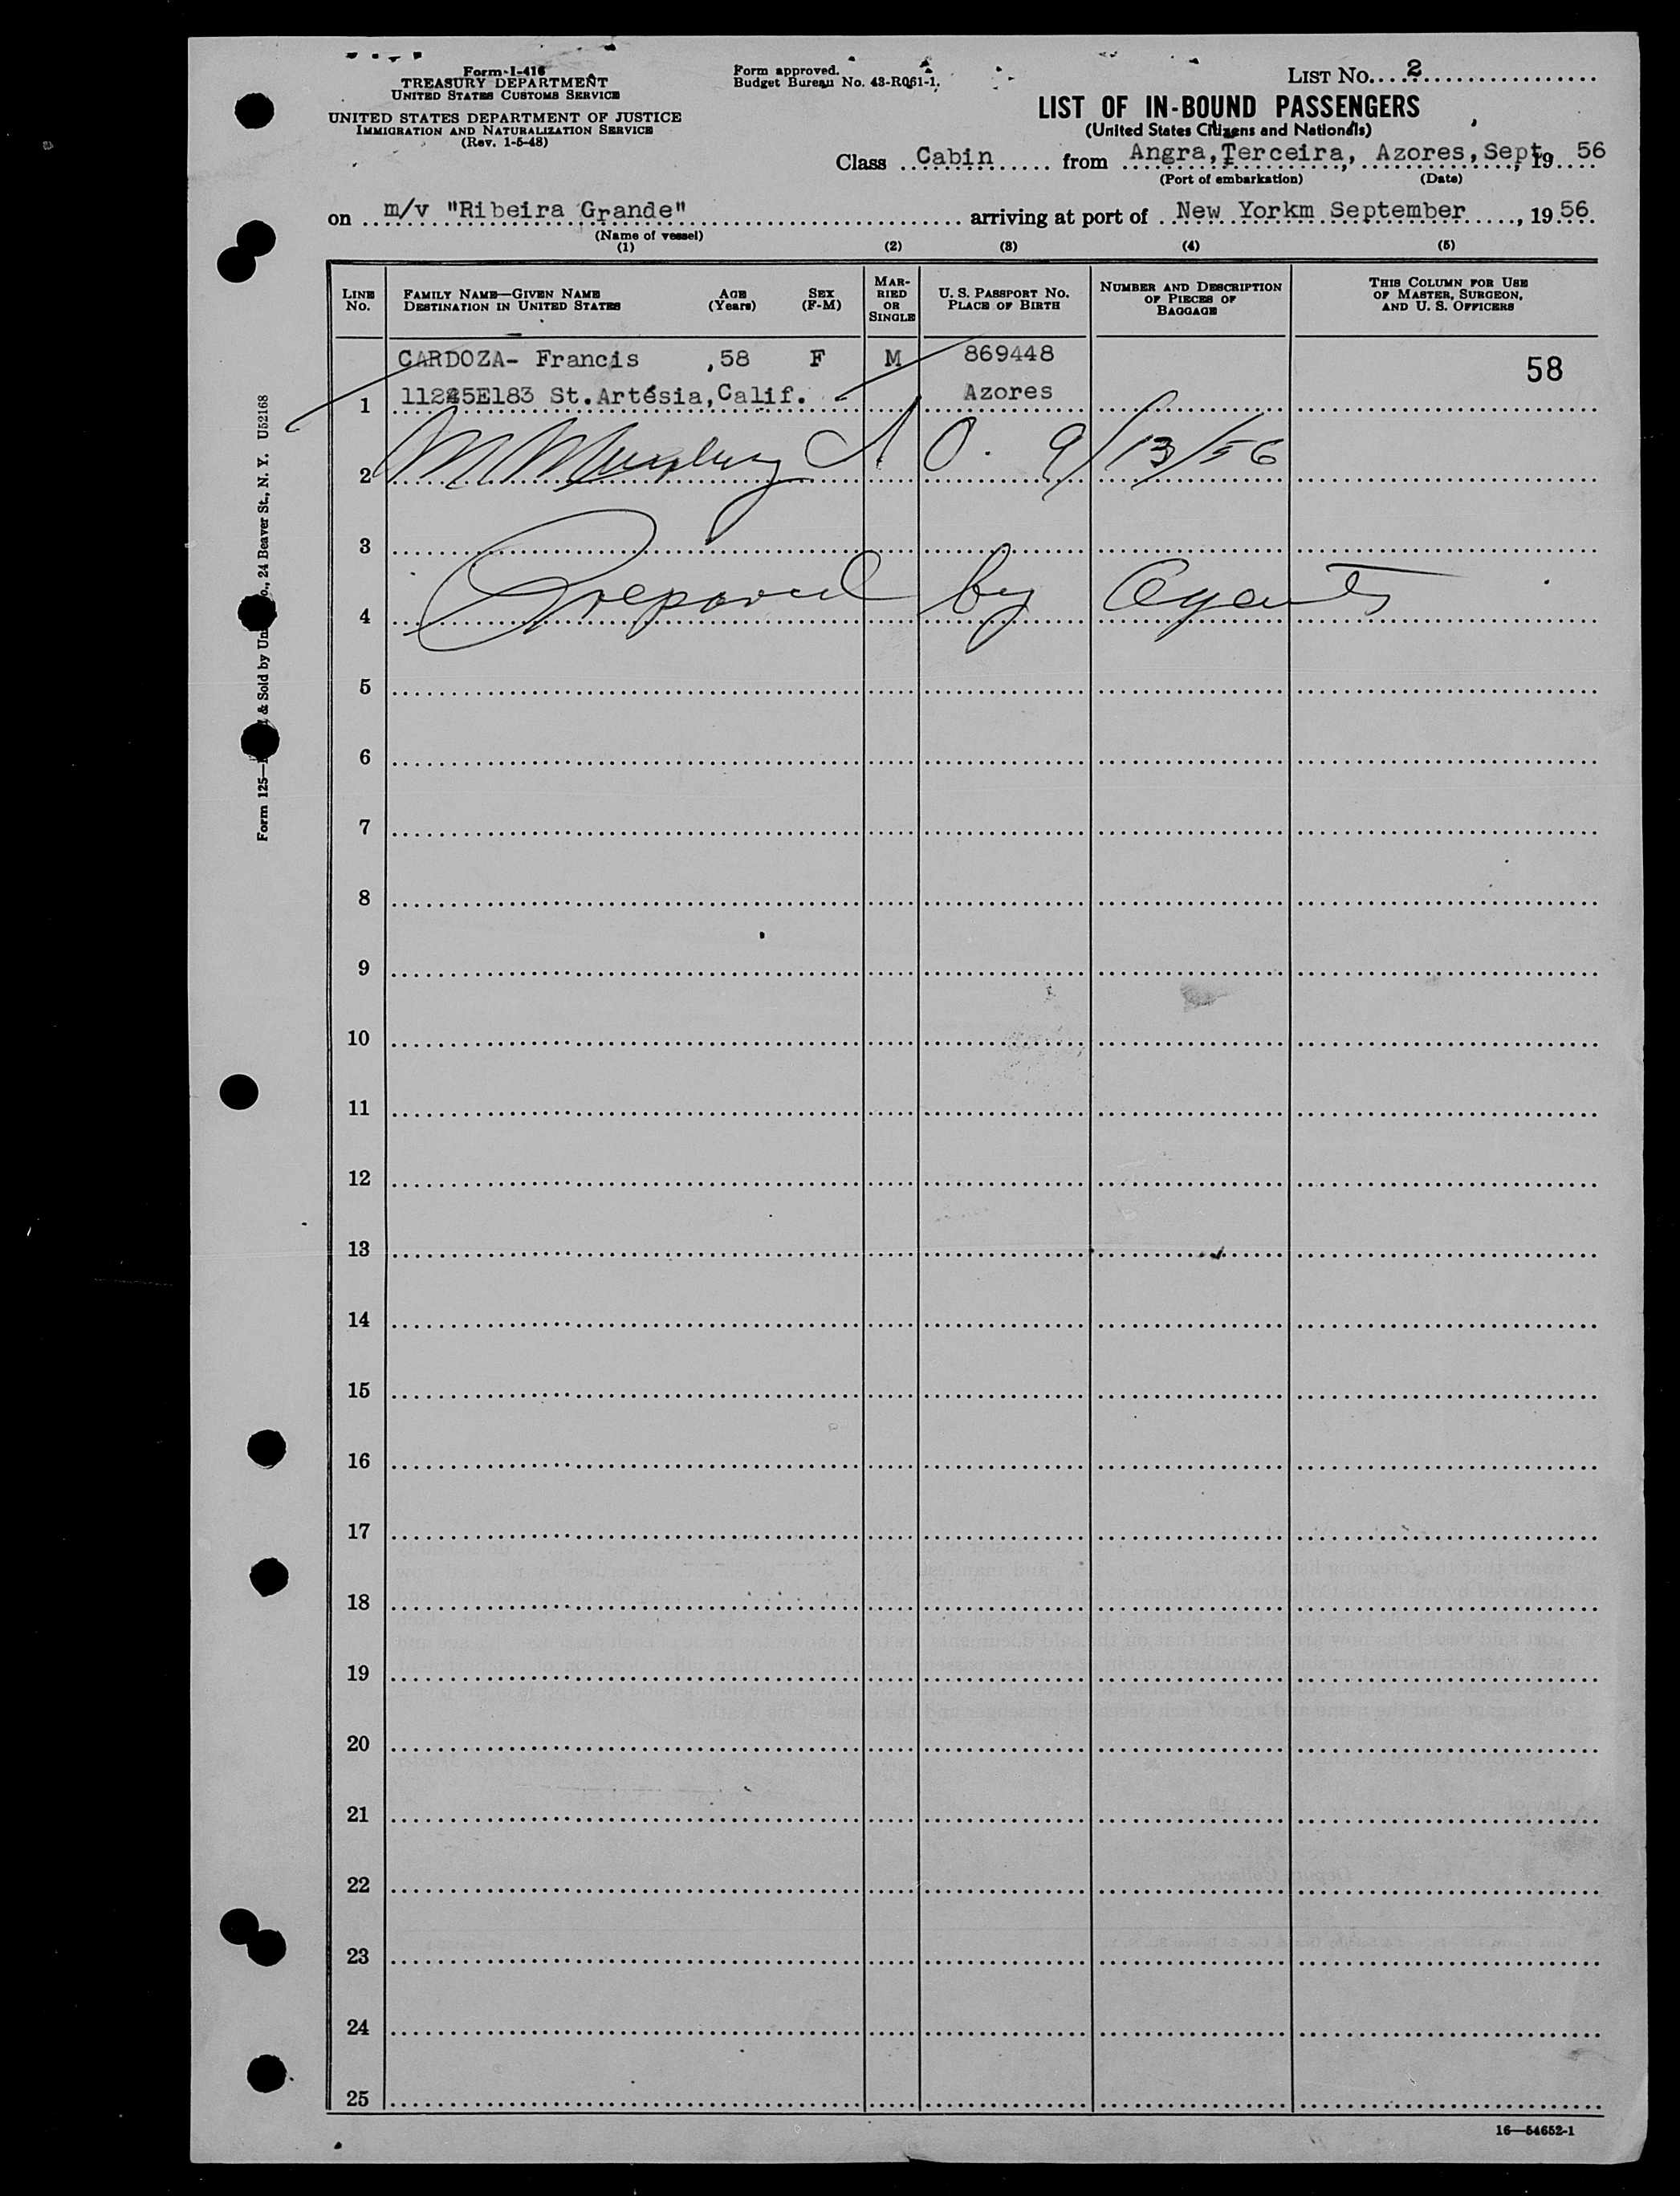 Form I-416
TREASURY DEPARTMENT
UNITED STATES CUSTOMS SERVICE
UNITED STATES DEPARTMENT OF JUSTICE
IMMIGRATION AND NATURALIZATION SERVICE
(Rev. 1-5-48)
Form approved.
Budget Bureau No. 43-R061-1.
LIST No. 2
LIST OF IN-BOUND PASSENGERS
(United States Citizens and Nationals)
Class Cabin from Angra, Terceira, Azores, Sept, 19 56
(Port of embarkation) (Date)
on m/v "Ribeira Grande" arriving at port of New Yorkm September, 19 56.
(Name of vessel)
(1) (2) (3) (4) (5)
LINE No. FAMILY NAME—GIVEN NAME DESTINATION IN UNITED STATES AGE (Years) SEX (F-M) MARRIED OR SINGLE U. S. PASSPORT NO. PLACE OF BIRTH NUMBER AND DESCRIPTION OF PIECES OF BAGGAGE THIS COLUMN FOR USE OF MASTER, SURGEON, AND U. S. OFFICERS
CARDOZA- Francis ,58 F M 869448 58
1 11225E183 St. Artésia, Calif. Azores
2 9/13/56
3
4 Prepared by Agents
5
6
7
8
9
10
11
12
13
14
15
16
17
18
19
20
21
22
23
24
25
16—54652-1
Form 125— & Sold by Un o., 24 Beaver St., N. Y. U52168